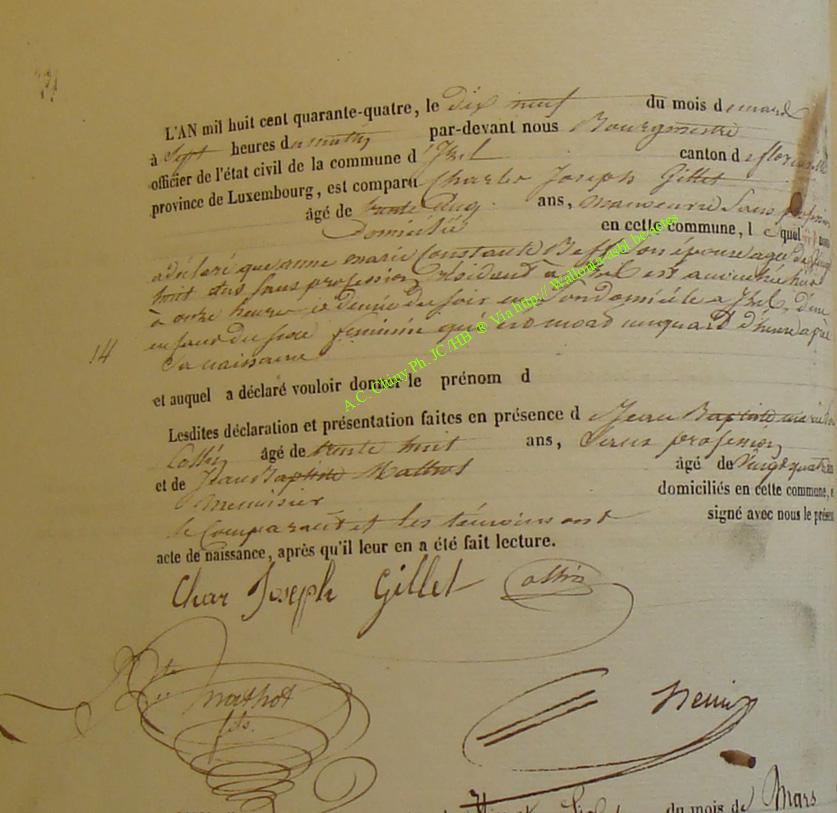 L'AN mil huit cent quarante-quatre, le dix neuf du mois de mars
à sept heures du matin par-devant nous Bourgmestre
officier de l'état civil de la commune d'Izel canton de florenville
province de Luxembourg, est comparu Charles Joseph Gillet
âgé de trente cinq ans, manoeuvre
Domicilié en cette commune, lequel
a déclaré que anne marie Constante son épouse agée de
huit ans sans profession résidant à Izel est accouchée hier
à onze heures et demie du soir en son domicile a Izel, d'un
enfant du sexe feminin qui est mort un quart d'heure après
sa naissance
14
et auquel a déclaré vouloir donner le prénom d
Lesdites déclaration et présentation faites en présence d Jean Baptiste
Collin âgé de trente huit ans, sans profession
et de Jean Baptiste Mathot âgé de vingt quatre
menuisier domiciliés en cette commune,
le Comparant et les témoins ont signé avec nous le présent
acte de naissance, après qu'il leur en a été fait lecture.
Char Joseph Gillet Collin
Mathot
fils.
du mois de Mars
A.C. Chiny Ph. JC/HB ® Via http://Wallonia-asbl.be/actes